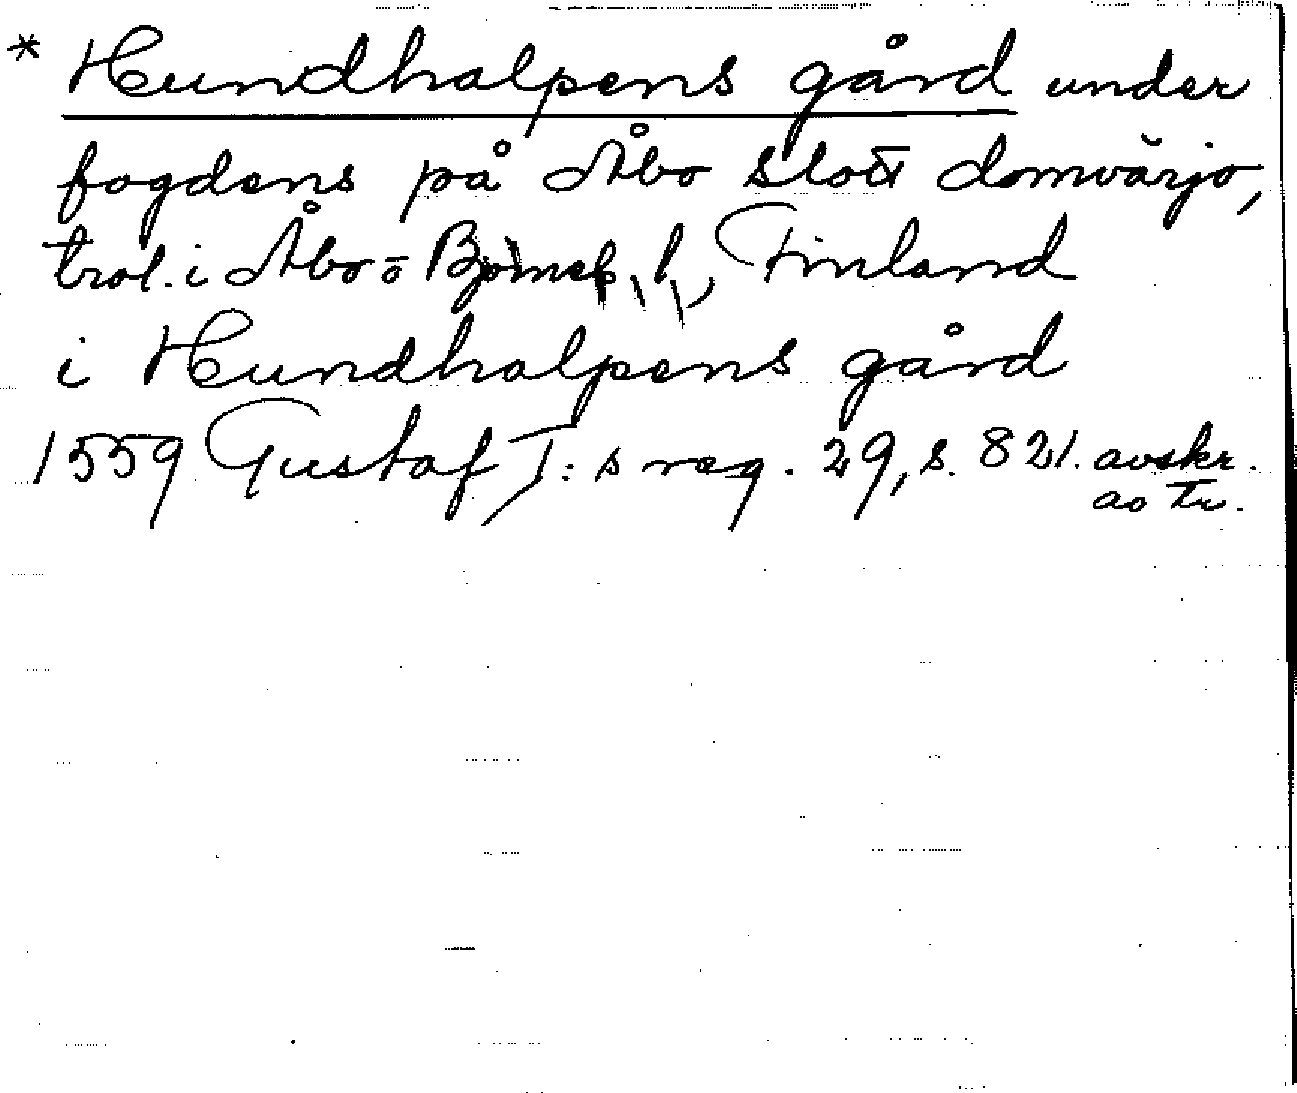 * Hundhalpens gård under
fogdens på Åbo slott domvärjo,
trol. i Åbo- o Björneb. l., Finland
i Hundhalpens gård
1559 Gustaf I:s reg. 29, s. 821. avskr.
ao tr.